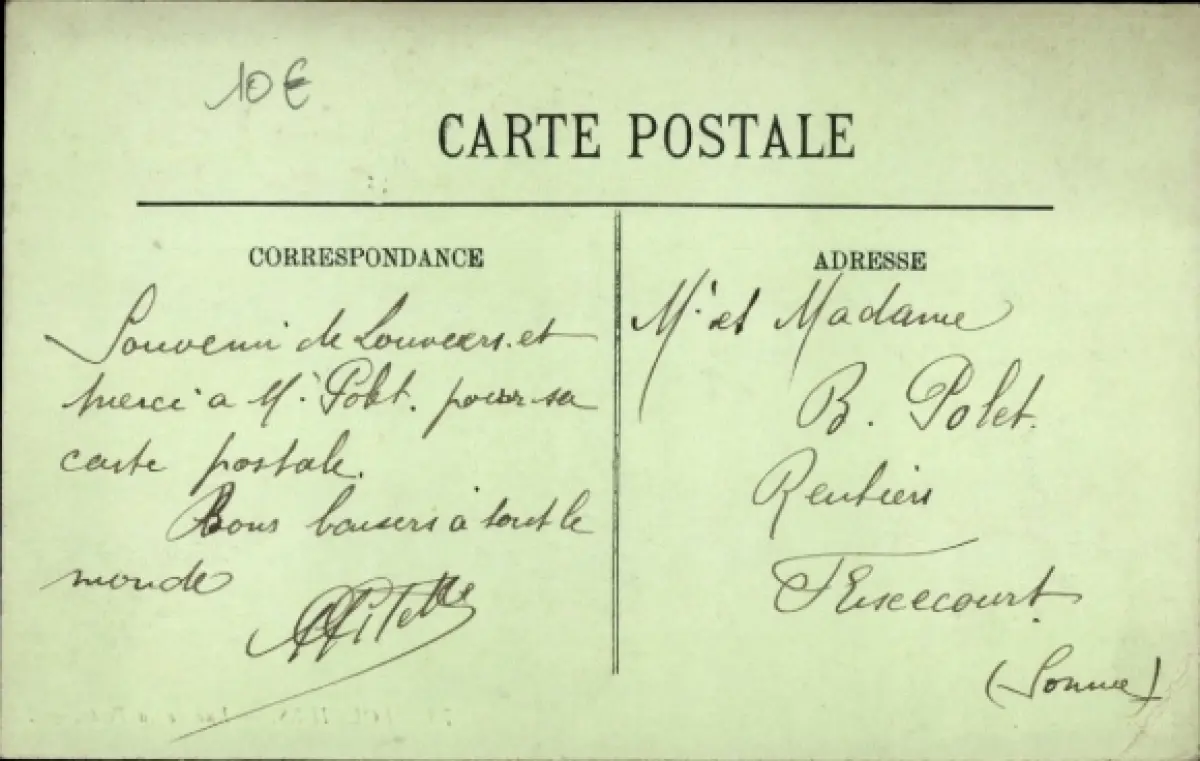 10 €
CARTE POSTALE
CORRESPONDANCE
Souvenir de Louviers. et
merci à Mr. Polet. pour sa
carte postale.
Bons baisers à tout le
monde
ADRESSE
Mr et Madame
B. Polet.
Rentiers
(Somme)